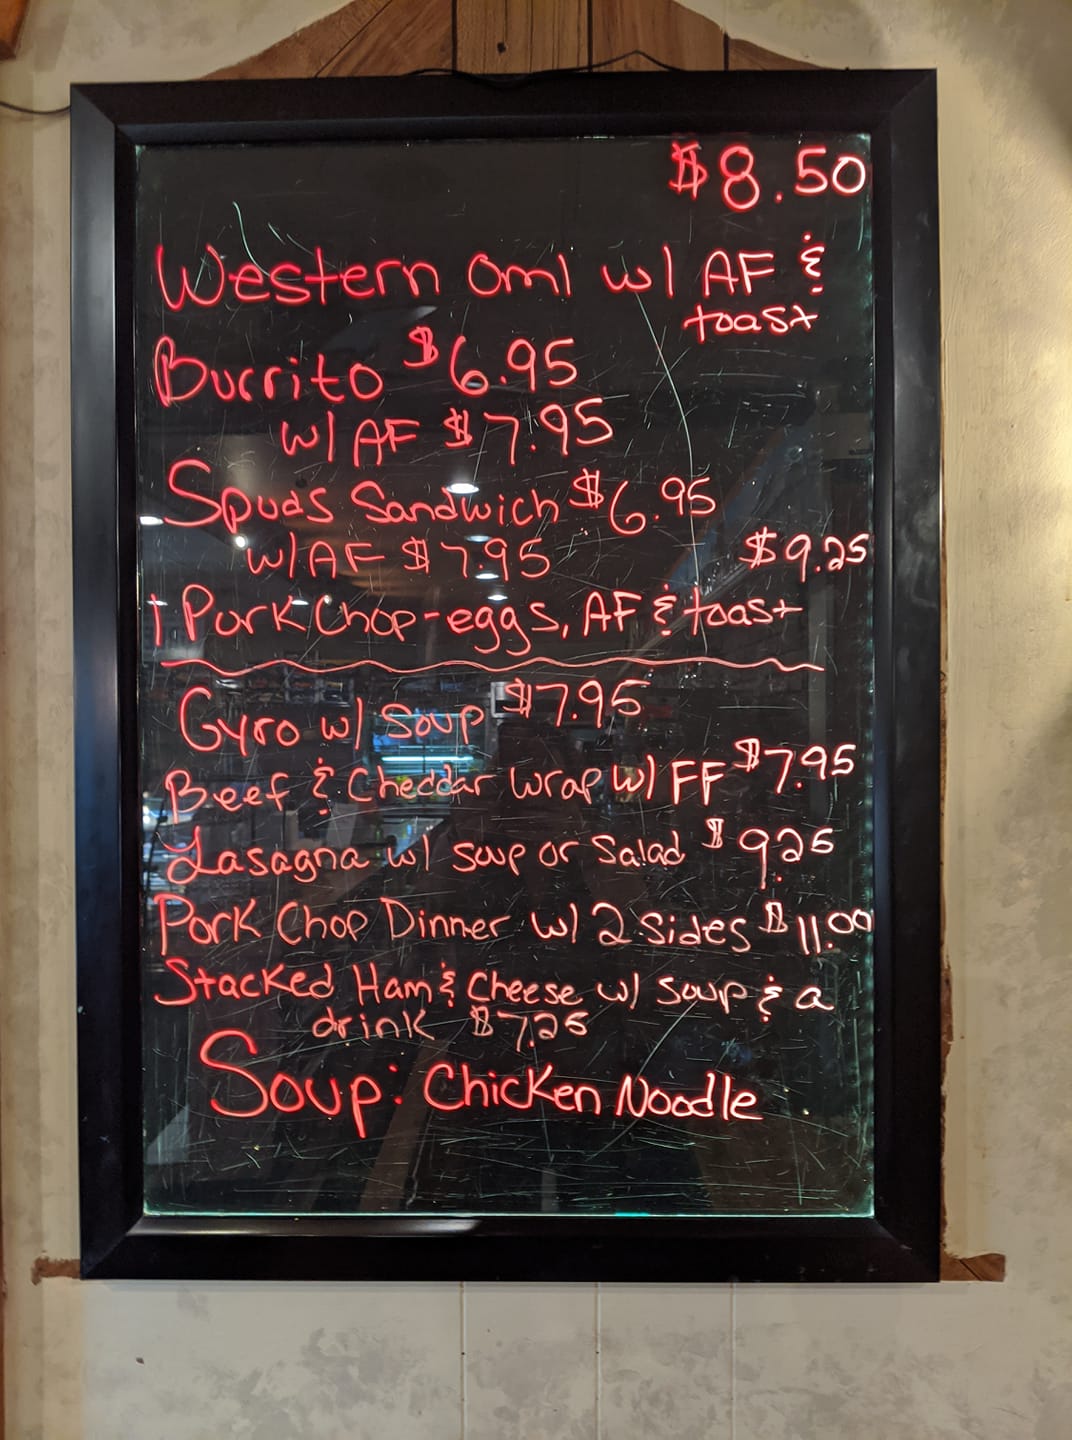 $8.50
Western Oml w/ AF &
toast
Burrito $6.95
w/ AF $7.95
Spuds Sandwich $6.95
w/ AF $7.95 $9.25
1 Pork Chop-eggs, AF & toast
Gyro w/ Soup $7.95
Beef & Cheddar Wrap w/ FF $7.95
Lasagna w/ soup or Salad $9.25
Pork Chop Dinner w/ 2 Sides $11.00
Stacked Ham & Cheese w/ soup & a
drink $7.25
Soup: Chicken Noodle